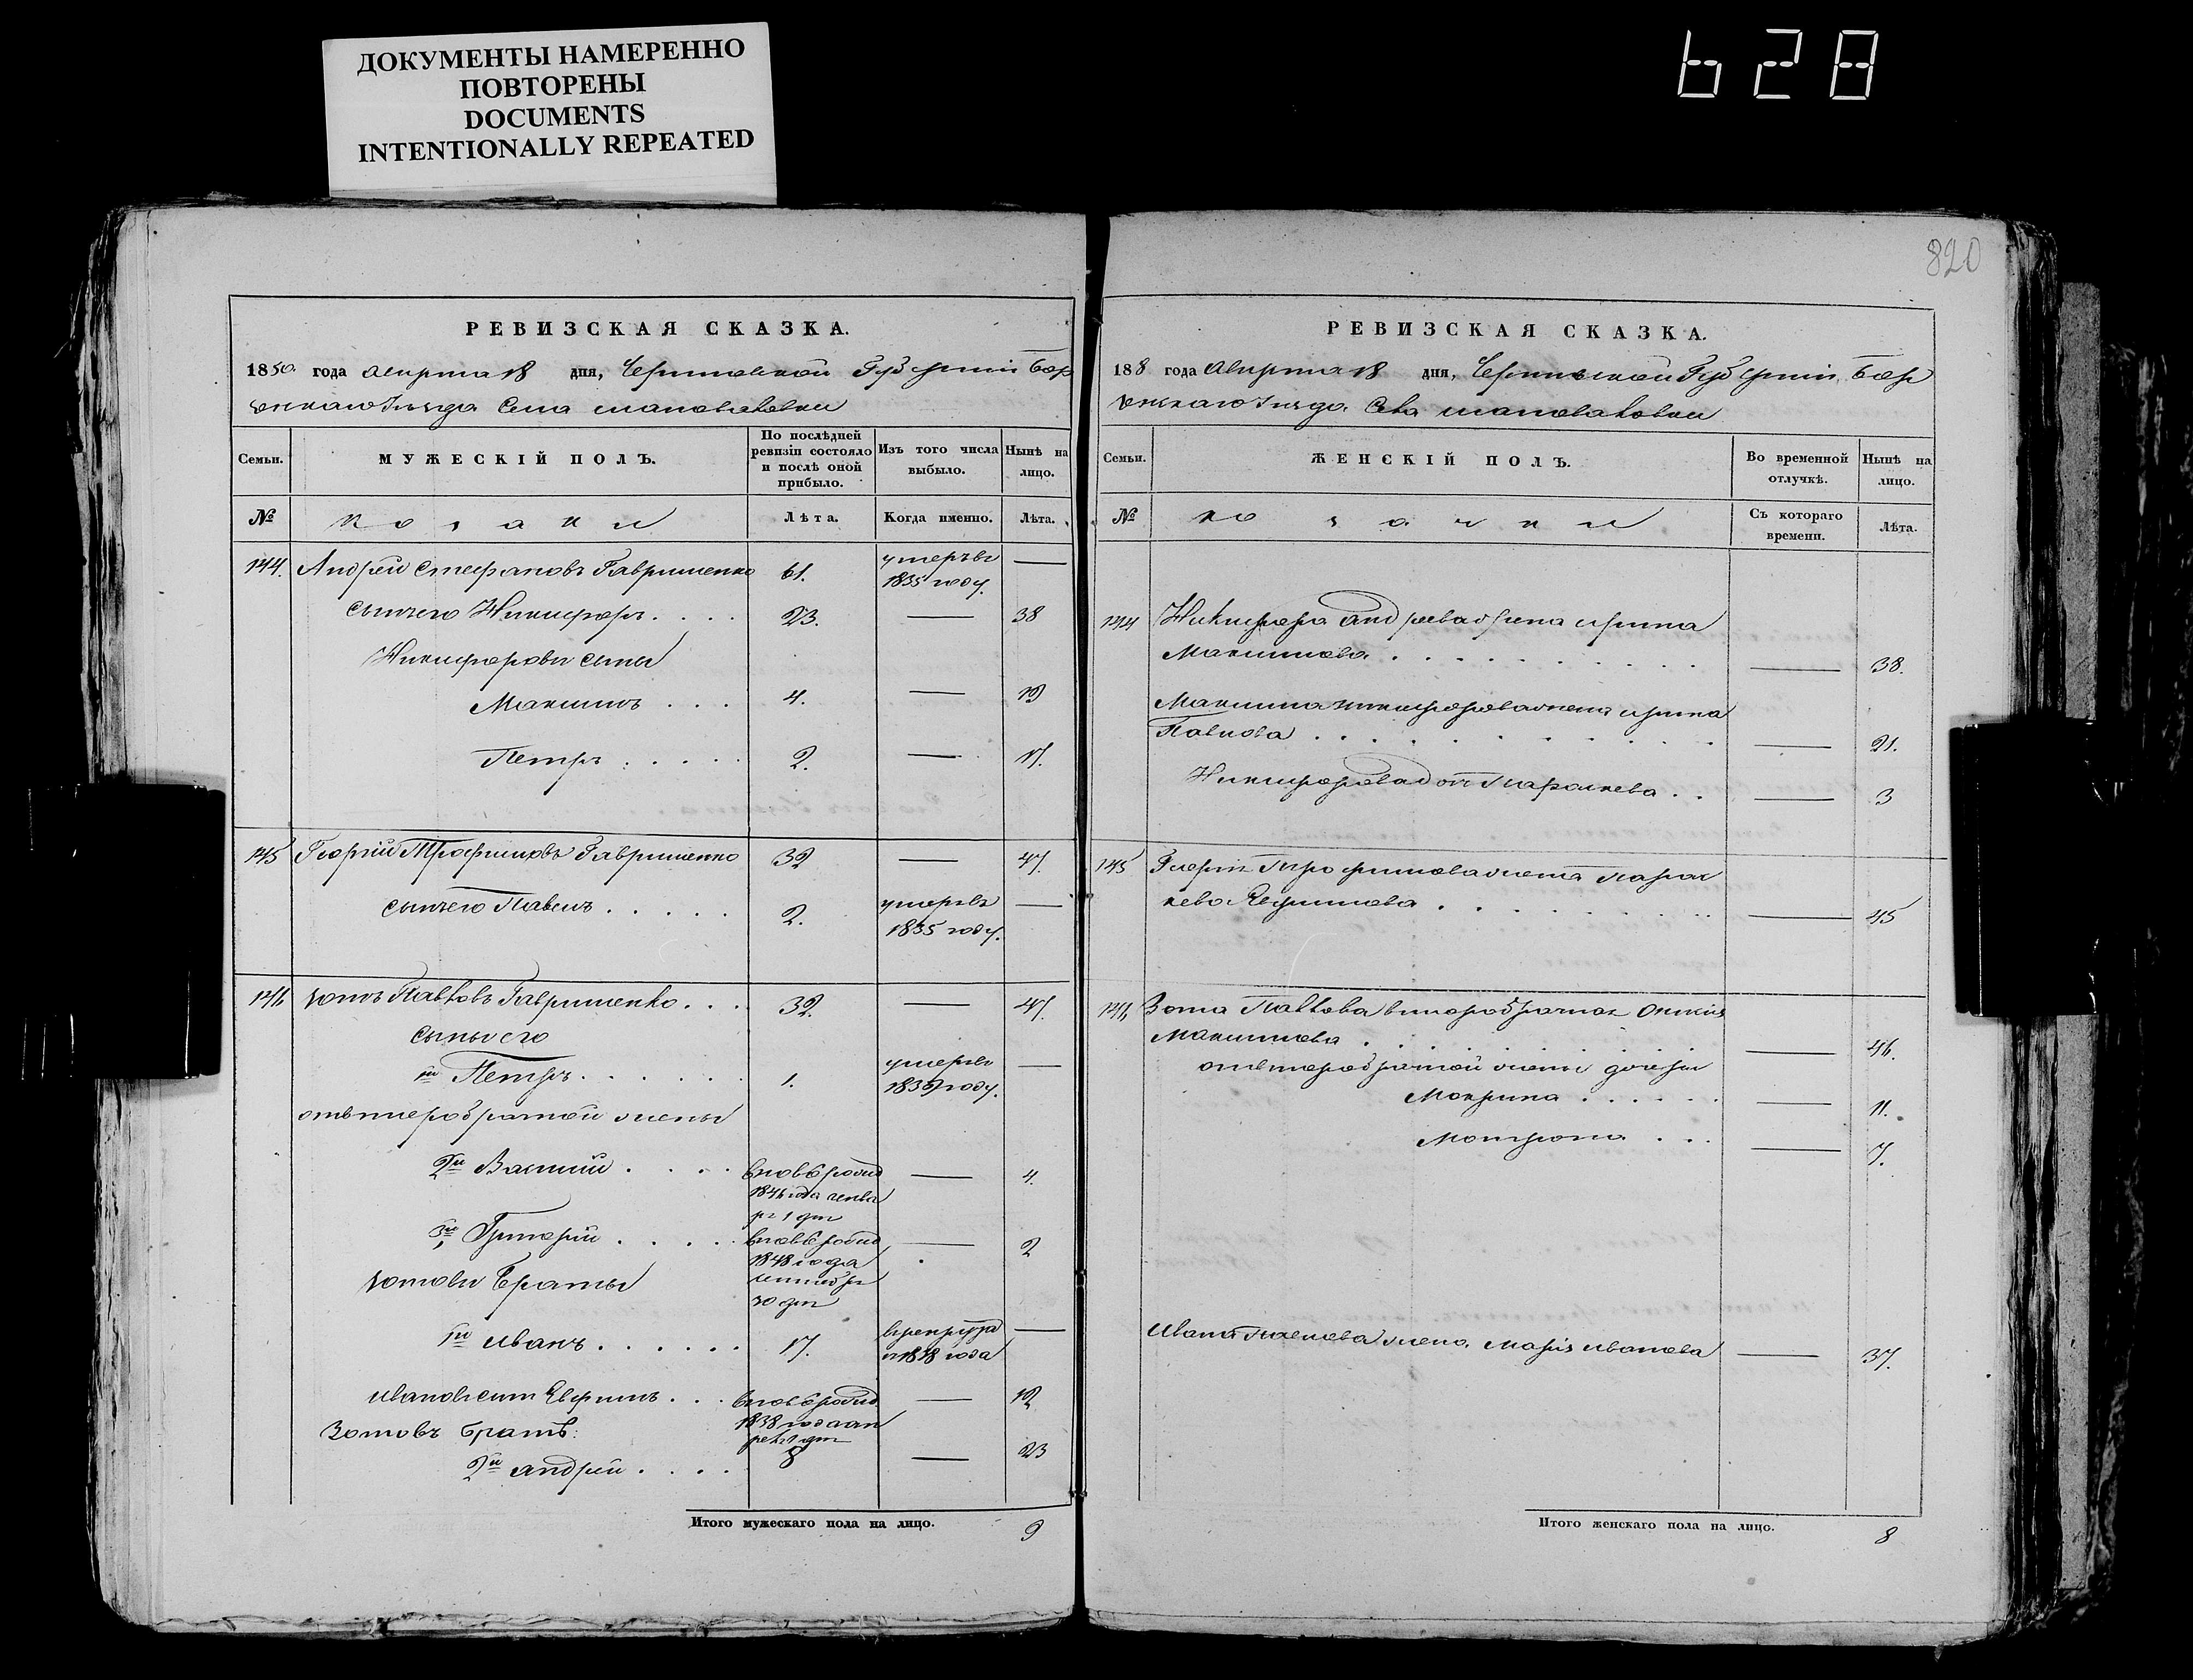 ДОКУМЕНТЫ НАМЕРЕННО
ПОВТОРЕНЫ
DOCUMENTS
INTENTIONALLY REPEATED
628
820
РЕВИЗСКАЯ СКАЗКА.
1850 года Априля 18 дня, Черниговской Губернии Бор
зенскаго Уезда Села Шаповаловки
Семьи.
МУЖЕСКІЙ ПОЛЪ.
По послѣдней ревизіи состояло и послѣ оной прибыло.
Изъ того числа выбыло.
Нынѣ на лицо.
№
козаки
Лѣта.
Когда именно.
Лѣта.
144. Андрей Стефановъ Гавришенко 61. умеръ въ 1835 году. —
сынъ его Никифоръ . . . . 23. — 38
Никифоровы сыны
Максимъ . . . 4. — 19
Петръ . . . . . 2. — 17.
145 Георгій Трофимовъ Гавришенко 32 — 47.
сынъ его Павелъ . . . . . 2. умеръ въ 1835 году. —
146 Зотъ Павловъ Гавришенко . . . 32. — 47.
сыны его
1й Петръ . . . . . . 1. умеръ въ 1839 году. —
отъ второбрачной жены
2й Василій . . . . вновь рожд 1846 года генва ря 1 дня — 4.
3й Григорій . . . . . вновь рожд 1848 года сентября 30 дня — 2
Зотовы браты
1й Иванъ . . . . . . 17. в рекрутах с 1838 года —
Ивановъ сынъ Евфимъ . . . вновь рожд 1838 года ап реля 1 дня — 12
Зотовъ братъ:
2й Андрей . . . . 8 — 23
Итого мужескаго пола на лицо. 9
РЕВИЗСКАЯ СКАЗКА.
188 года Априля 18 дня, Черниговской Губернии, Бор
зенскаго Уезда. Села Шаповаловки
Семьи.
ЖЕНСКІЙ ПОЛЪ.
Во временной отлучкѣ.
Нынѣ на лицо.
№
козачки
Съ котораго времени.
Лѣта.
144 Никифора Андреева жена Ирина
Максимова . . . . . . . . . — 38.
Максима Никифорова жена Ирина
Павлова . . . . . . . . . — 21.
Никифорова дочь Параскева . . — 3
145 Георгія Трофимова жена Парас
кева Ефимова . . . . . . . — 45
146 Зота Павлова второбрачная
Максимова . . . . . . . . — 46.
отъ второбрачной жены дочери
Мокрина . . . . . . — 11.
Мотрона . . . — 7.
Ивана Павлова жена Марія Иванова — 37.
Итого женскаго пола на лицо. 8